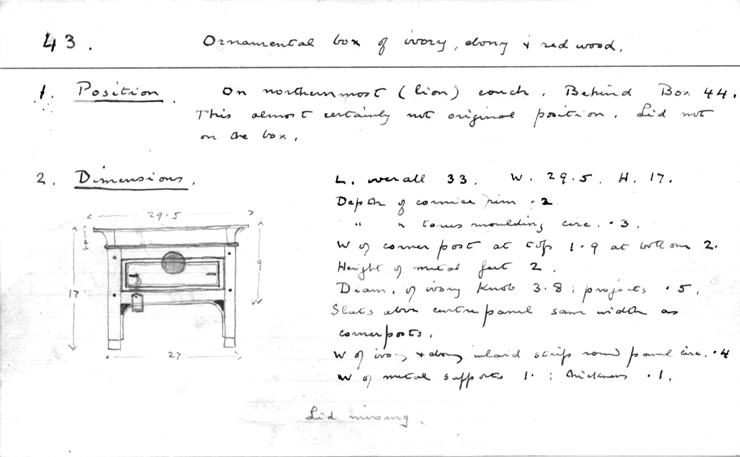 43. Ornamental box of ivory, ebony & red wood.
1. Position. On northernmost (lion) couch. Behind Box 44.
This almost certainly not original position. Lid not
on the box.
2. Dimensions. L. overall 33. W. 29.5. H. 17.
Depth of cornice rim .2
" " torus moulding circ. .3.
W of corner post at top 1.9 at bottom 2.
Height of metal feet 2.
Diam. of ivory knob 3.8 : projects .5.
Slats above centre panel same width as
cornerposts.
W of ivory & ebony inlaid strips round panel circ. .4
W of metal supports 1. : thickness .1.
29.5
17
9
27
Lid missing.